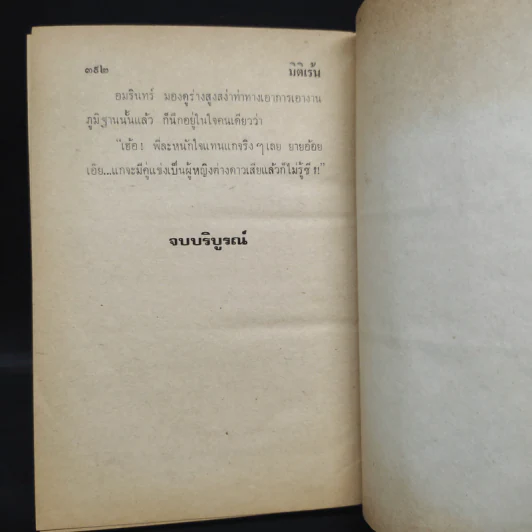 ๓๙๒ มิติเร้น
อมรินทร์ มองดูร่างสูงสง่าท่าทางเอาการเอางาน
ภูมิฐานนั้นแล้ว ก็นึกอยู่ในใจคนเดียวว่า
"เฮ้อ! พี่ละหนักใจแทนแกจริง ๆ เลย ยายอ้อย
เอ๊ย...แกจะมีคู่แข่งเป็นผู้หญิงต่างดาวเสียแล้วก็ไม่รู้ซี !"
จบบริบูรณ์